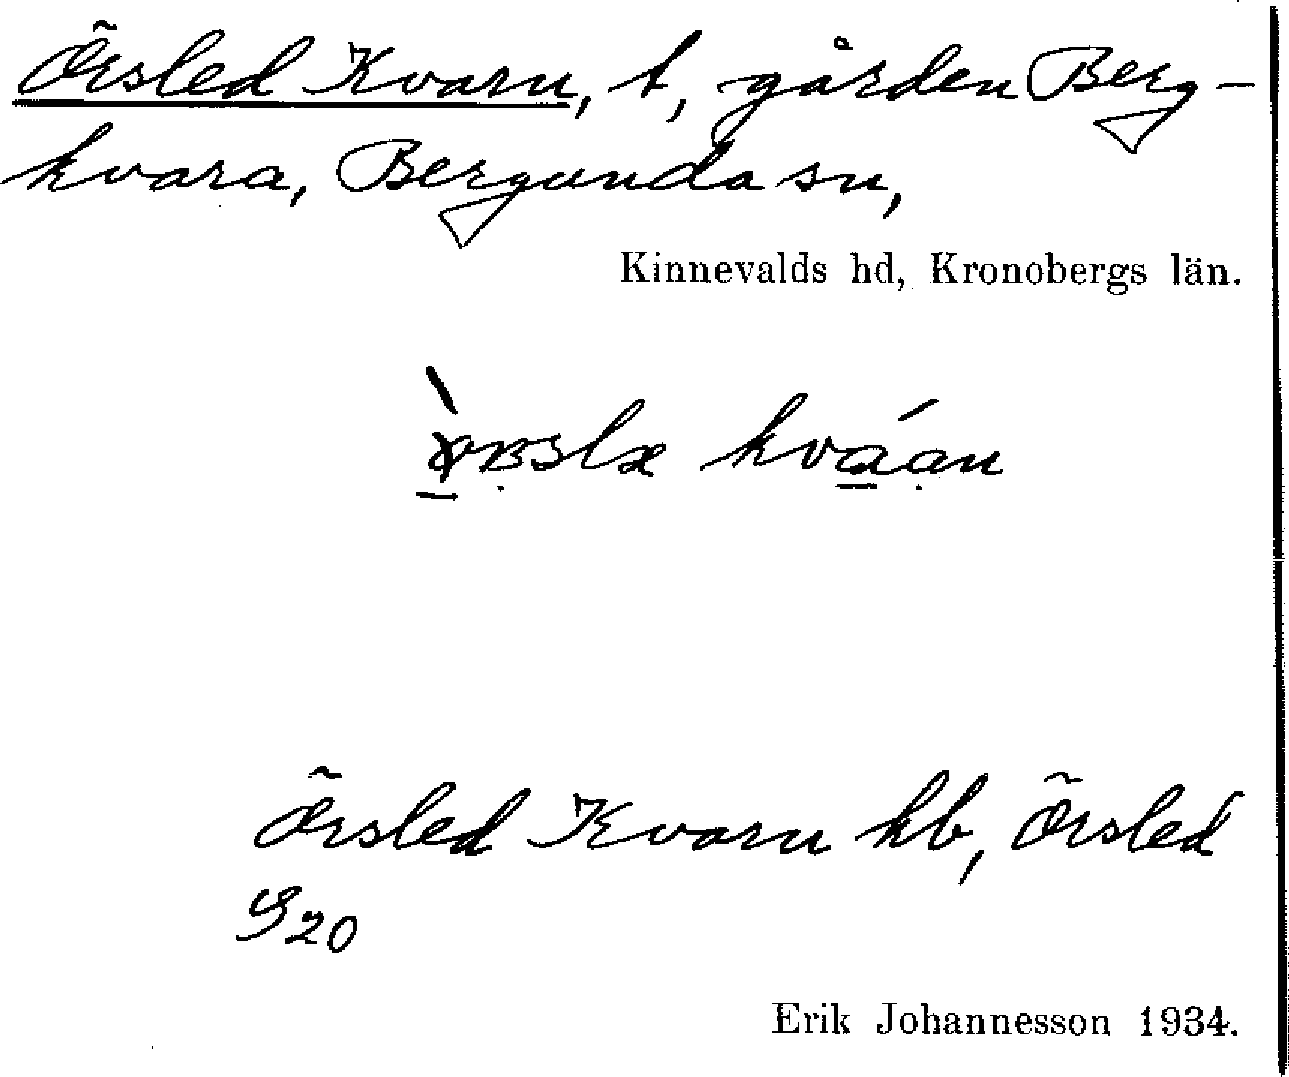 Örsled Kvarn, t, gården Berg-
kvara, Bergunda sn,
Kinnevalds hd, Kronobergs län.
kváan
Örsled Kvarn hb, Örsled
S20
Erik Johannesson 1934.